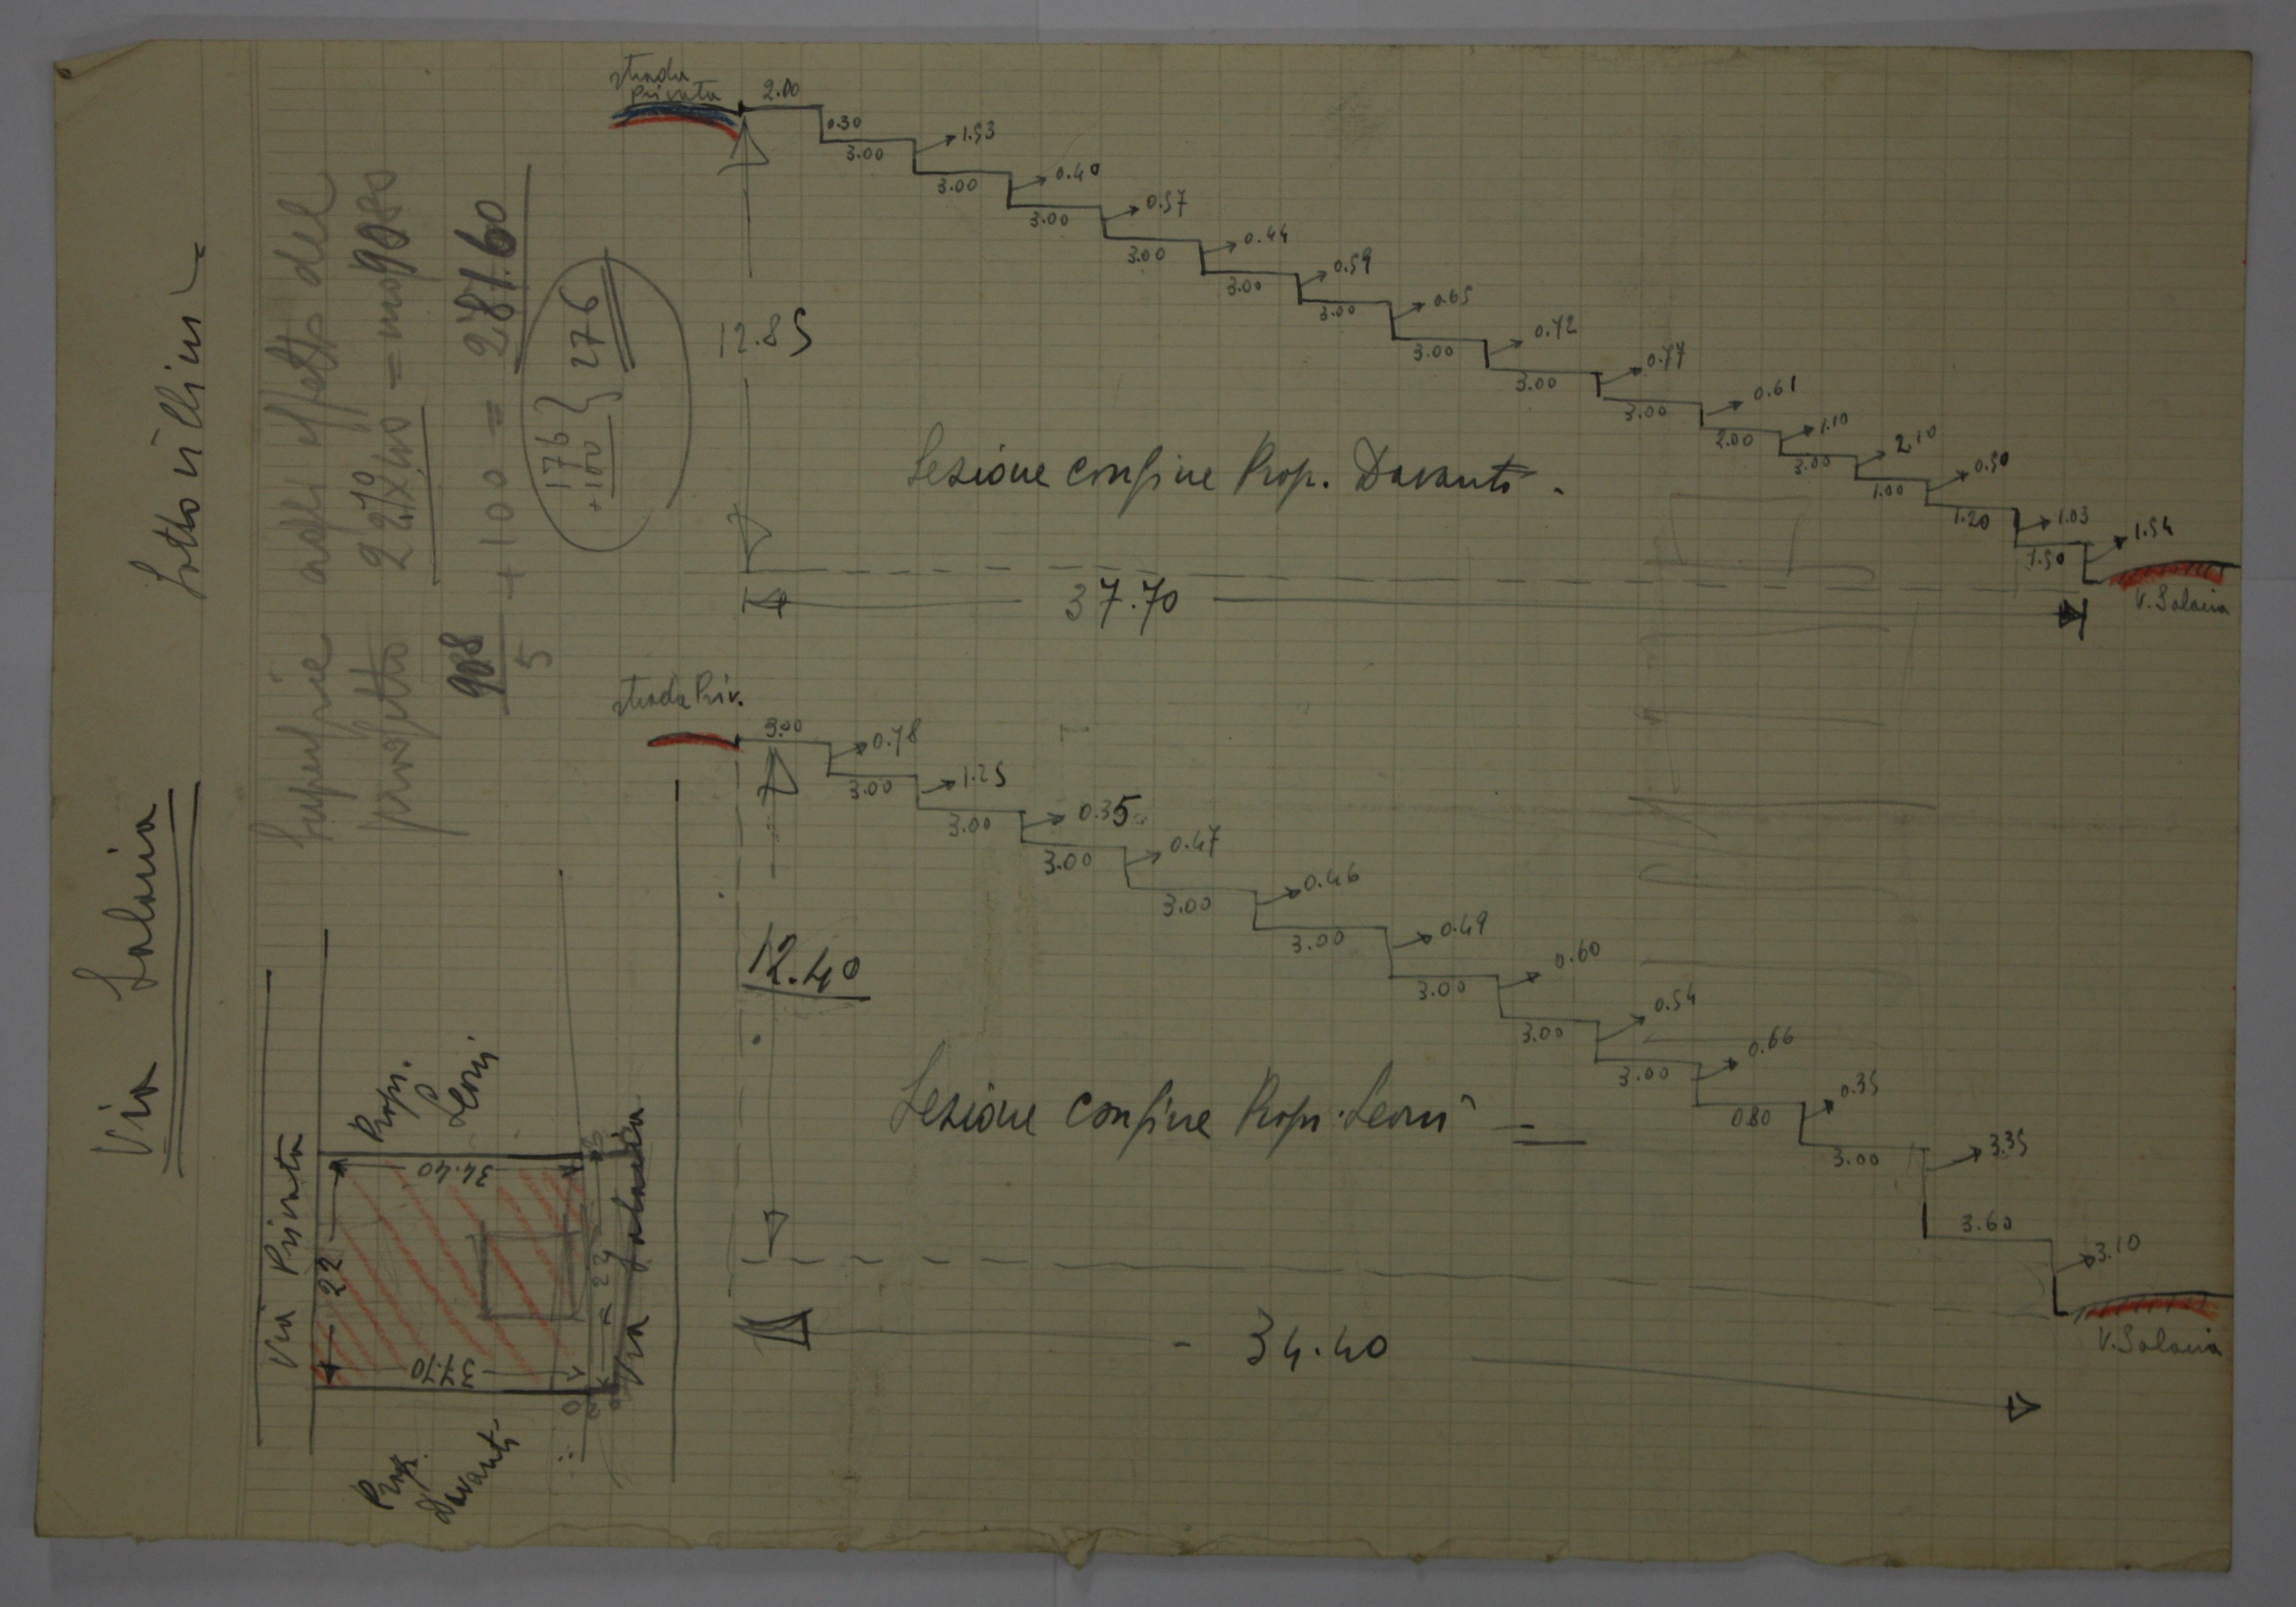 Via Salaria
Lotto Villini
Superficie agli effetti del
progetto 22,70 x 40 = mq 908
908
5
+ 100 = 281.60
176
+100
276
strada
Privata
2.00
0.30
3.00
1.53
3.00
0.40
3.00
0.57
3.00
0.44
3.00
0.59
3.00
0.65
3.00
0.72
3.00
0.77
3.00
0.61
2.00
1.10
3.00
2.10
1.00
0.50
1.20
1.03
1.50
1.54
V. Salaria
12.85
Sezione confine Prop. Davanti
37.70
strada Priv.
3.00
0.78
3.00
1.25
3.00
0.35
3.00
0.47
3.00
0.46
3.00
0.49
3.00
0.60
3.00
0.54
3.00
0.66
0.80
0.35
3.00
3.35
3.60
3.10
V. Salaria
12.40
Sezione confine Prop. Leoni
34.40
Via Privata
22
Prop.
Leoni
34.40
37.70
23
Via Salaria
Prop.
Davanti